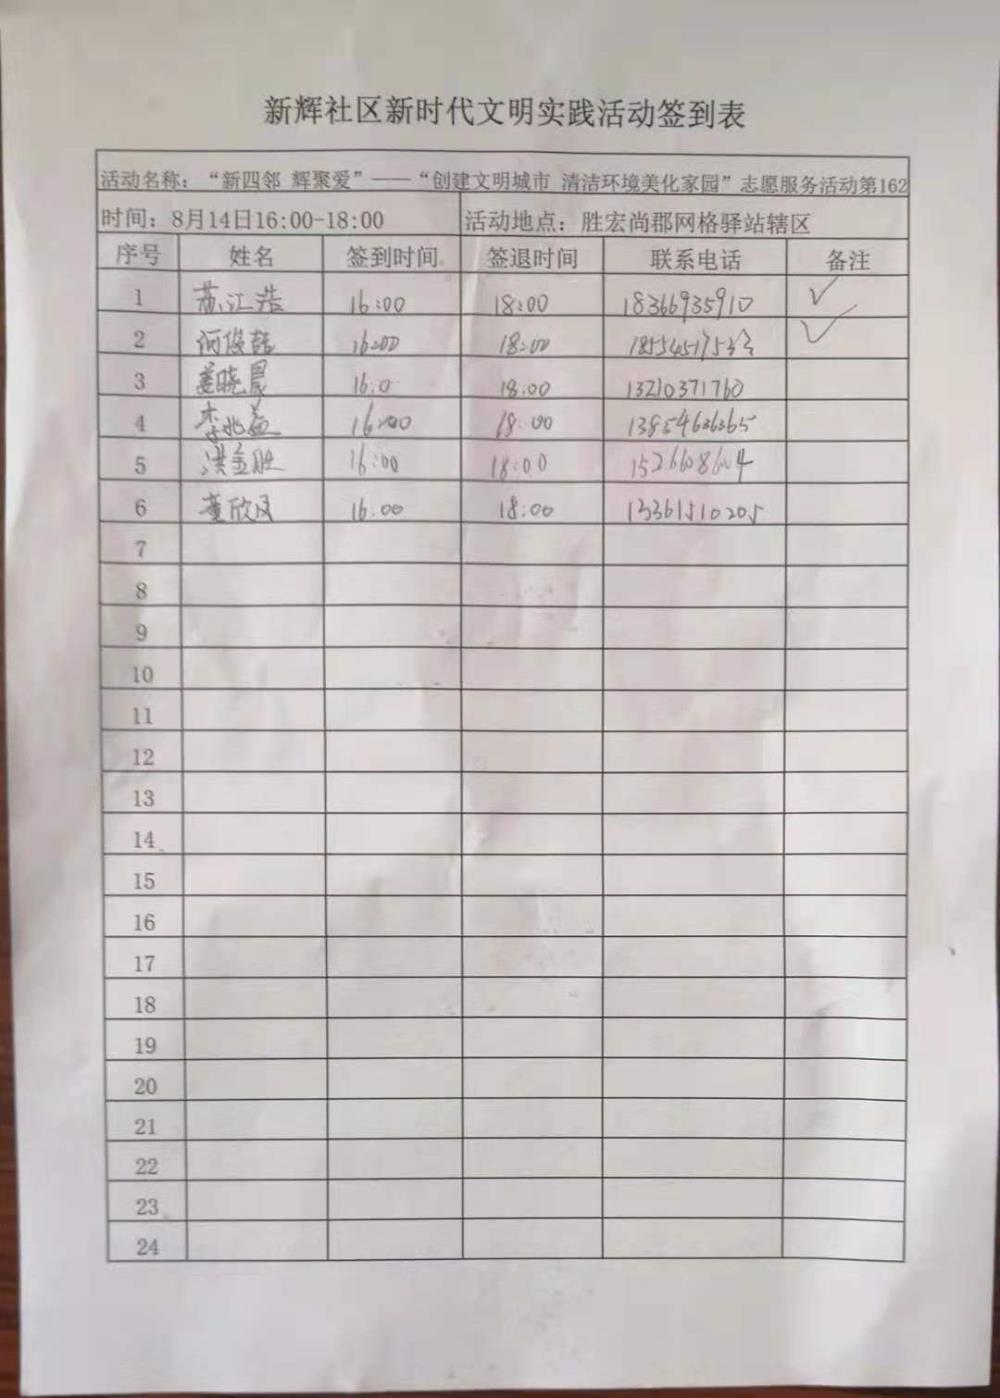 新辉社区新时代文明实践活动签到表
活动名称：“新四邻 辉聚爱”——“创建文明城市 清洁环境美化家园”志愿服务活动第162
时间：8月14日16:00-18:00 活动地点：胜宏尚郡网格驿站辖区
序号 姓名 签到时间 签退时间 联系电话 备注
1 苏江浩 16:00 18:00 18366935910 ✓
2 16:00 18:00 ✓
3 姜晓晨 16:0 18:00 13210371760
4 李兆益 16:00 18:00 13854636365
5 洪金胜 16:00 18:00
6 董欣风 16:00 18:00 13361510205
7
8
9
10
11
12
13
14
15
16
17
18
19
20
21
22
23
24